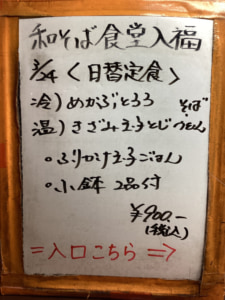 和そば食堂入福
3/24 <日替定食>
冷) めかぶとろろ そば
温) きざみ玉子とじうどん
• ふりかけ玉子ごはん
• 小鉢 2品付
¥900.-
(税込)
=入口こちら=>